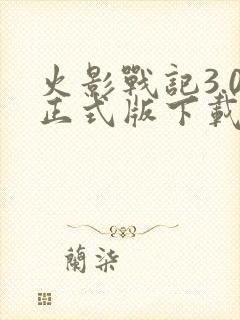 火影戰記3.0
正式版下載
蘭柒